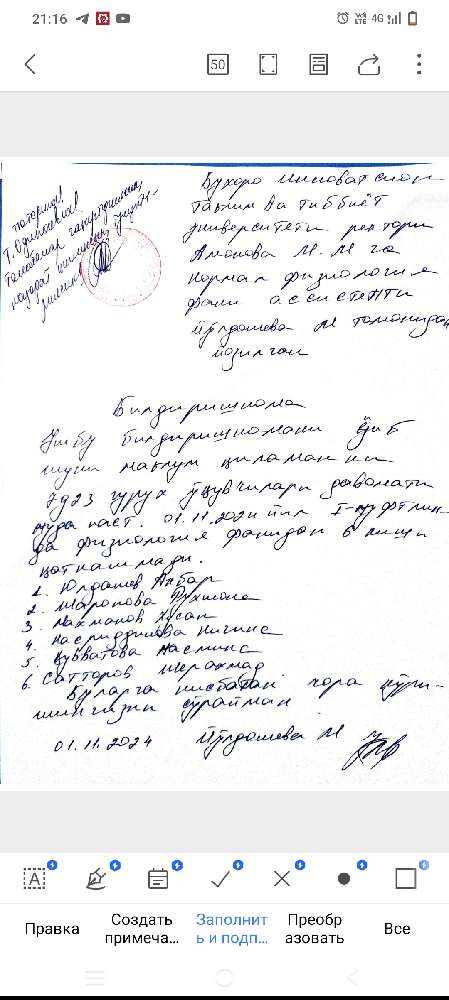 21:16
4G
50
Бухоро инновацион
таълим ва тиббиёт
университети ректори
Амонова М. М га
нормал физиология
фани ассистенти
Йўлдошева М томонидан
ёзилган
Билдиришнома
Ушбу билдиришномани ёзиб
шуни маълум қиламанки
7д23 гуруҳ ўқувчилари давомати
жуда паст. 01.11.2024 йил I-жуфтлик
да физиология фанидан 6 киши
қатнашмади.
1. Юлдашев Акбар
2. Шаропова Рухшона
3. Рахмонов Хусан
4. Насриддинова Нигина
5. Қувватова Масмина
6. Сатторов Шерахмад
Буларга нисбатан чора кўри-
шингизни сўрайман
01.11.2024 Йўлдошева М
Правка
Создать примеча...
Заполнит ь и подп...
Преобр азовать
Все